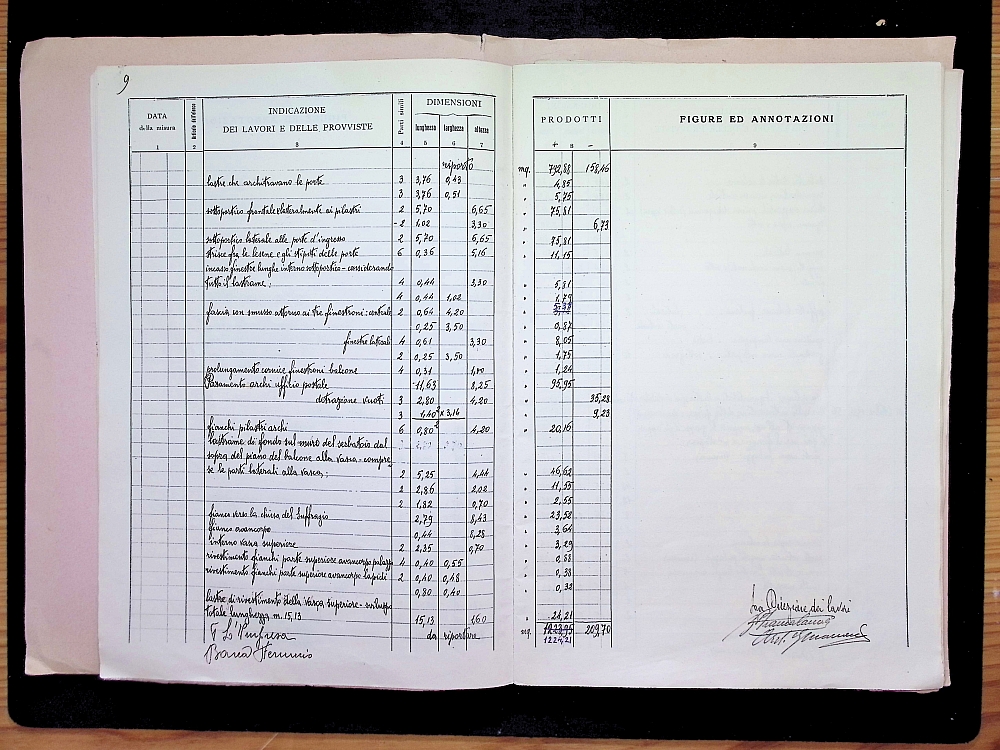 9
DATA della misura
Articolo dell'elenco
INDICAZIONE
DEI LAVORI E DELLE PROVVISTE
Parti simili
DIMENSIONI
lunghezza larghezza altezza
PRODOTTI
FIGURE ED ANNOTAZIONI
1 2 3 4 5 6 7 + 8 - 9
riporto mq. 792,88 158,46
lastre che architravano le porte 3 3,76 0,43 " 4,85
3 3,76 0,51 " 5,75
sottoportico frontale e lateralmente ai pilastri 2 5,70 6,65 " 75,81
- 2 1,02 3,30 " 6,73
sottoportico laterale alle porte d'ingresso 2 5,70 6,65 " 75,81
strisce fra le lesene e gli stipiti delle porte 6 0,36 5,16 " 11,15
incasso finestre lunghe interno sottoportico - considerando
tutto il lastrame: 4 0,44 3,30 " 5,81
4 0,44 1,02 " 1,79
fascia con smusso attorno ai tre finestroni: centrale 2 0,64 4,20 "
0,25 3,50 " 0,87
finestre laterali 4 0,61 3,30 " 8,05
2 0,25 3,50 " 1,75
prolungamento cornice finestroni balcone 4 0,31 1,00 " 1,24
Paramento archi ufficio postale 11,63 8,25 " 95,95
detrazione vuoti 3 2,80 4,20 35,28
3 1,40² x 3,14 9,23
2
fianchi pilastri archi 6 0,80 4,20 " 20,16
lastrame di fondo sul muro del serbatoio dal
sopra del piano del balcone alla vasca - compre
se le parti laterali alla vasca: 2 5,25 4,44 " 46,62
2 2,86 2,02 " 11,55
2 1,82 0,70 " 2,55
fianco verso la chiesa del Suffragio 2,79 8,43 " 23,52
fianco avancorpo 0,44 8,28 " 3,64
interno vasca superiore 2 2,35 0,70 " 3,29
rivestimento fianchi parte superiore avancorpo palazzo 4 0,40 0,55 " 0,88
rivestimento fianchi parte superiore avancorpo lapidi 2 0,40 0,48 " 0,38
0,80 0,40 " 0,32
lastre di rivestimento della vasca superiore - sviluppo
totale lunghezza m. 15,13 15,13 1,60 " 24,21
da riportare mq. 209,70
1224,21
L'Impresa
La Direzione dei lavori